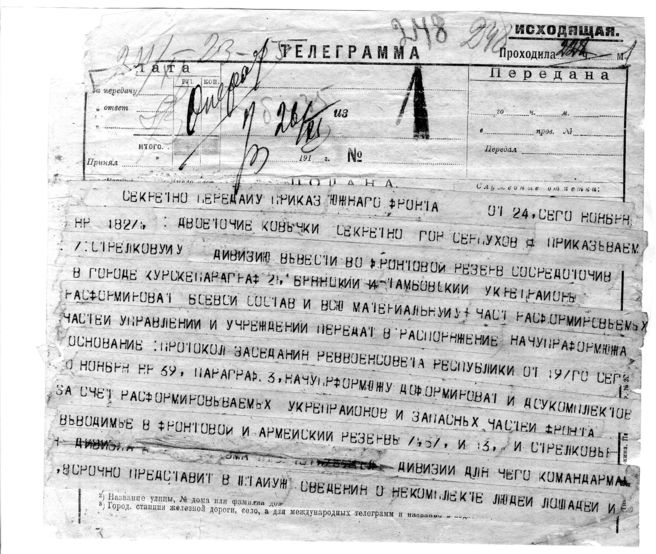 ИСХОДЯЩАЯ.
248
ТЕЛЕГРАММА
Проходила
Передана
Плата
руб. коп.
за передачу
„ ответ „
ИТОГО.
Принял
Операт
26/XI
из
191 г. №
го ч. м.
в пров. №
Передал
ПОДАНА.
Служебные отметки:
СЕКРЕТНО ПЕРЕДАЮ ПРИКАЗ ЮЖНАГО ФРОНТА ОТ 24, СЕГО НОЯБРЯ
НР 182/4, : ДВОЕТОЧИЕ КОВЫЧКИ СЕКРЕТНО ГОР СЕРПУХОВ ПРИКАЗЫВАЕМ
СТРЕЛКОВУЮ ДИВИЗИЮ ВЫВЕСТИ ВО ФРОНТОВОЙ РЕЗЕРВ СОСРЕДОТОЧИВ
В ГОРОДЕ КУРСКЕПАРАГРАФ 2, БРЯНСКИЙ И ТАМБОВСКИЙ УКРЕПРАЙОНЫ
РАСФОРМИРОВАТ ВСЕВСИ СОСТАВ И ВСЮ МАТЕРИАЛЬНУЮ ЧАСТ РАСФОРМИРОВЫЕМЫХ
ЧАСТЕЙ УПРАВЛЕНИИ И УЧРЕЖДЕНИИ ПЕРЕДАТ В РАСПОРЯЖЕНИЕ НАЧУПРАФОРМЮЖА
ОСНОВАНИЕ :ПРОТОКОЛ ЗАСЕДАНИЯ РЕВВОЕНСОВЕТА РЕСПУБЛИКИ ОТ 19/ГО СЕГ
О НОЯБРЯ НР 69, ПАРАГРАФ. 3,НАЧУПРФОРМЮЖУ ДОФОРМИРОВАТ И ДОУКОМПЛЕКТОВ
ЗА СЧЕТ РАСФОРМИРОВЫВАЕМЫХ УКРЕПРАИОНОВ И ЗАПАСНЫХ ЧАСТЕЙ ФРОНТА
ВЫВОДИМЫЕ В ФРОНТОВОЙ И АРМЕЙСКИЙ РЕЗЕРВЫ /45/, И 13, И СТРЕЛКОВЫЕ
ДИВИЗИИ ДЛЯ ЧЕГО КОМАНДАРМАМ
,ВСРОЧНО ПРЕДСТАВИТ В ШТАЮЖ СВЕДЕНИЯ О НЕКОМПЛЕКТЕ ЛЮДЕЙ ЛОШАДЕЙ И
*) Название улицы, № дома или фамилия
*) Город. станции железной дороги, село, а для международных телеграмм и название